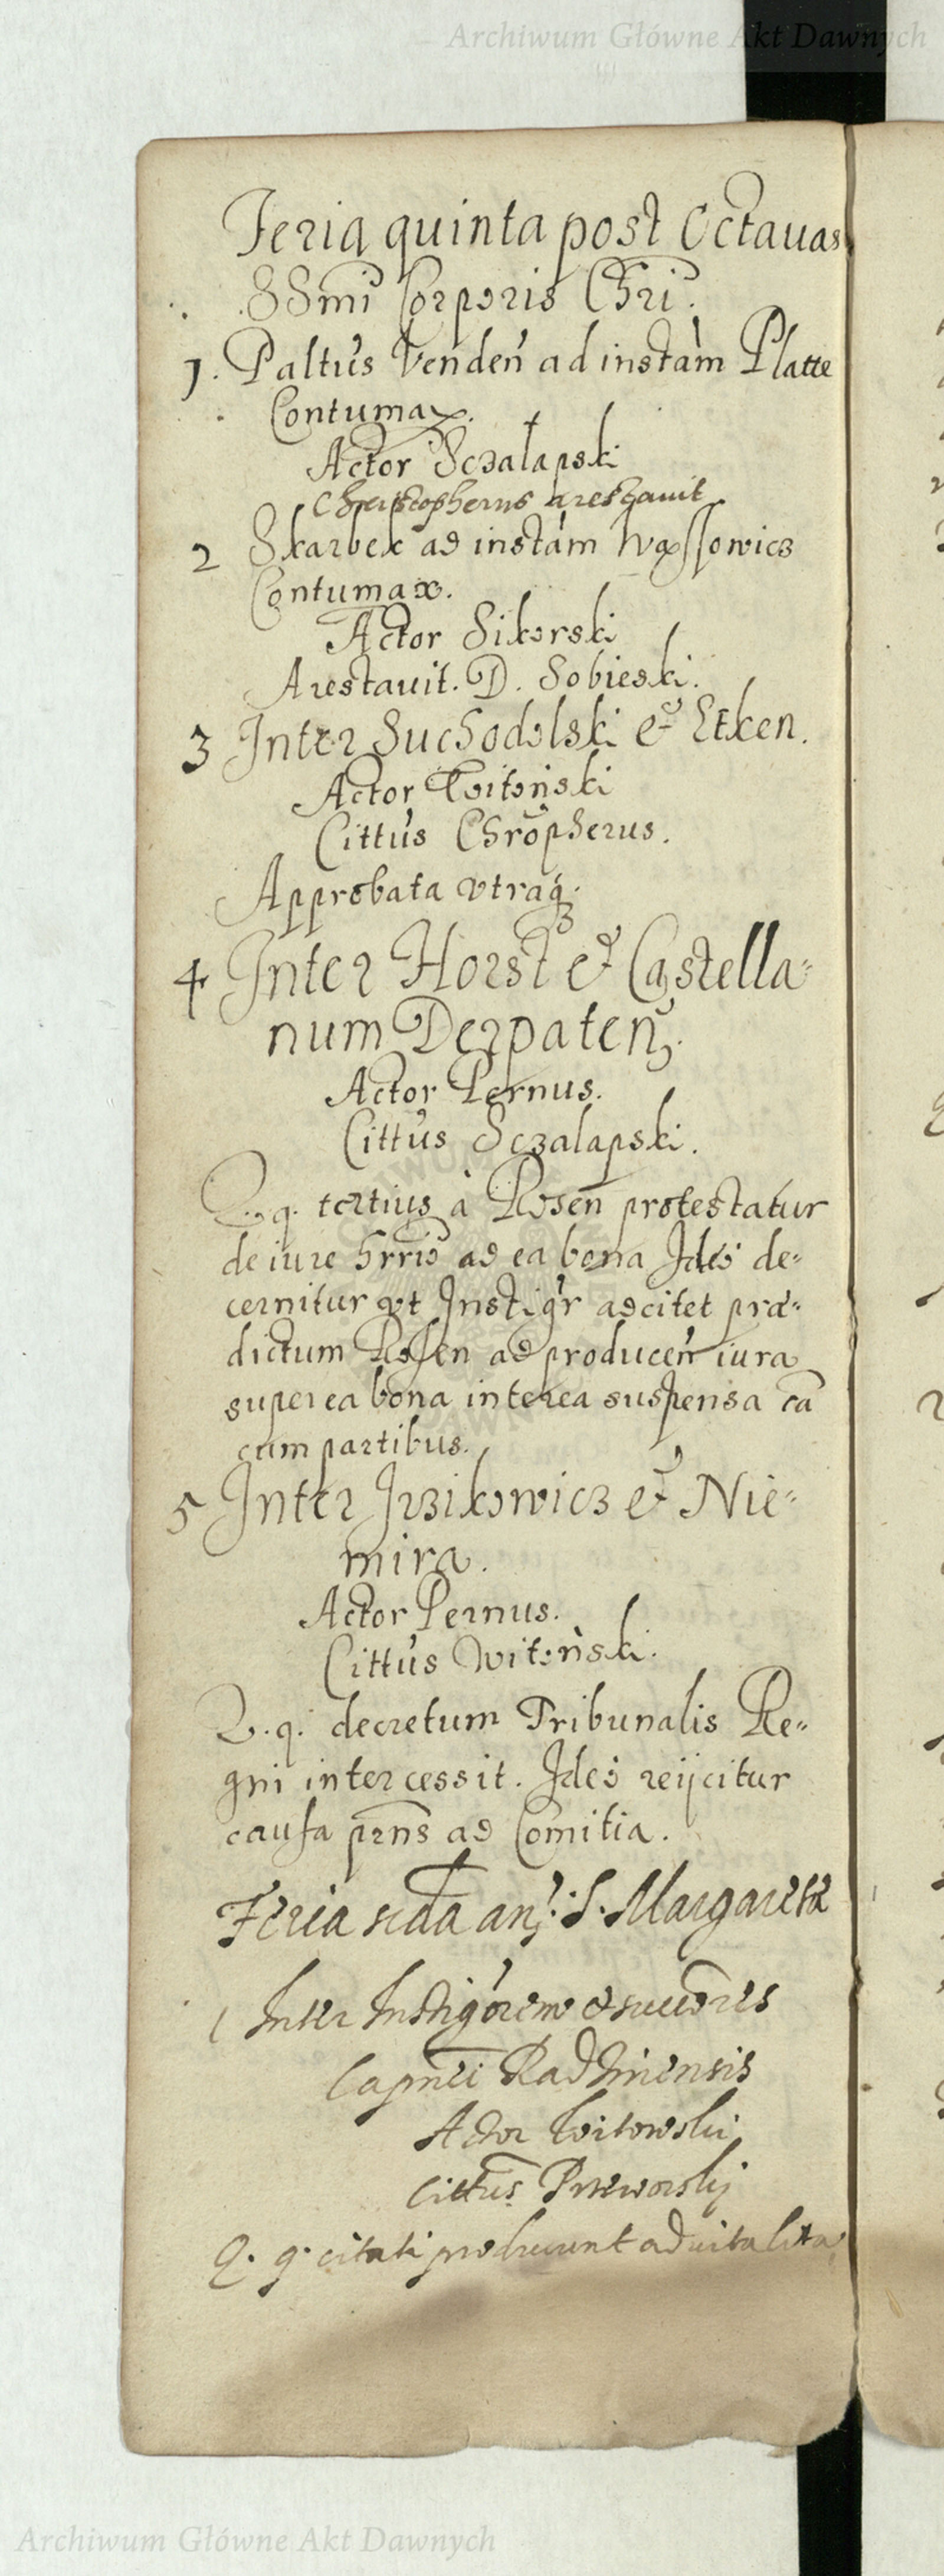 Archiwum Główne Akt Dawnych
Feria quinta post Octauas
SSmi Corporis Chri.
1. Paltus Venden ad instam Platte
Contumax.
Actor Sczalapski
Christopherus arestauit
2 Skarbek ad instam Wąssowicz
Contumax.
Actor Sikorski
Arestauit. D. Sobieski.
3 Inter Suchodolski et Etken.
Actor Witoński
Cittus Chropherus.
Approbata vtraq3
4 Inter Horst et Castella=
num Derpaten.
Actor Pernus.
Cittus Sczalapski.
Q. q. tertius à Rosen protestatur
de iure ad ea bona Ideo de=
cernitur vt Instigr adcitet præ=
dictum Rosen ad producen iura
super ea bona interea suspensa ca
cum partibus.
5 Inter Irzikowicz et Nie=
mira.
Actor Pernus.
Cittus Witoński.
Q. q. decretum Tribunalis Re=
gni intercessit. Ideo reijcitur
causa prns ad Comitia.
Feria scda an. S. Margaretæ
1 Inter Instigorem et succores
Capnei
Actor Witowski
Cittus
Q. q. citati producunt aduitalita
Archiwum Główne Akt Dawnych